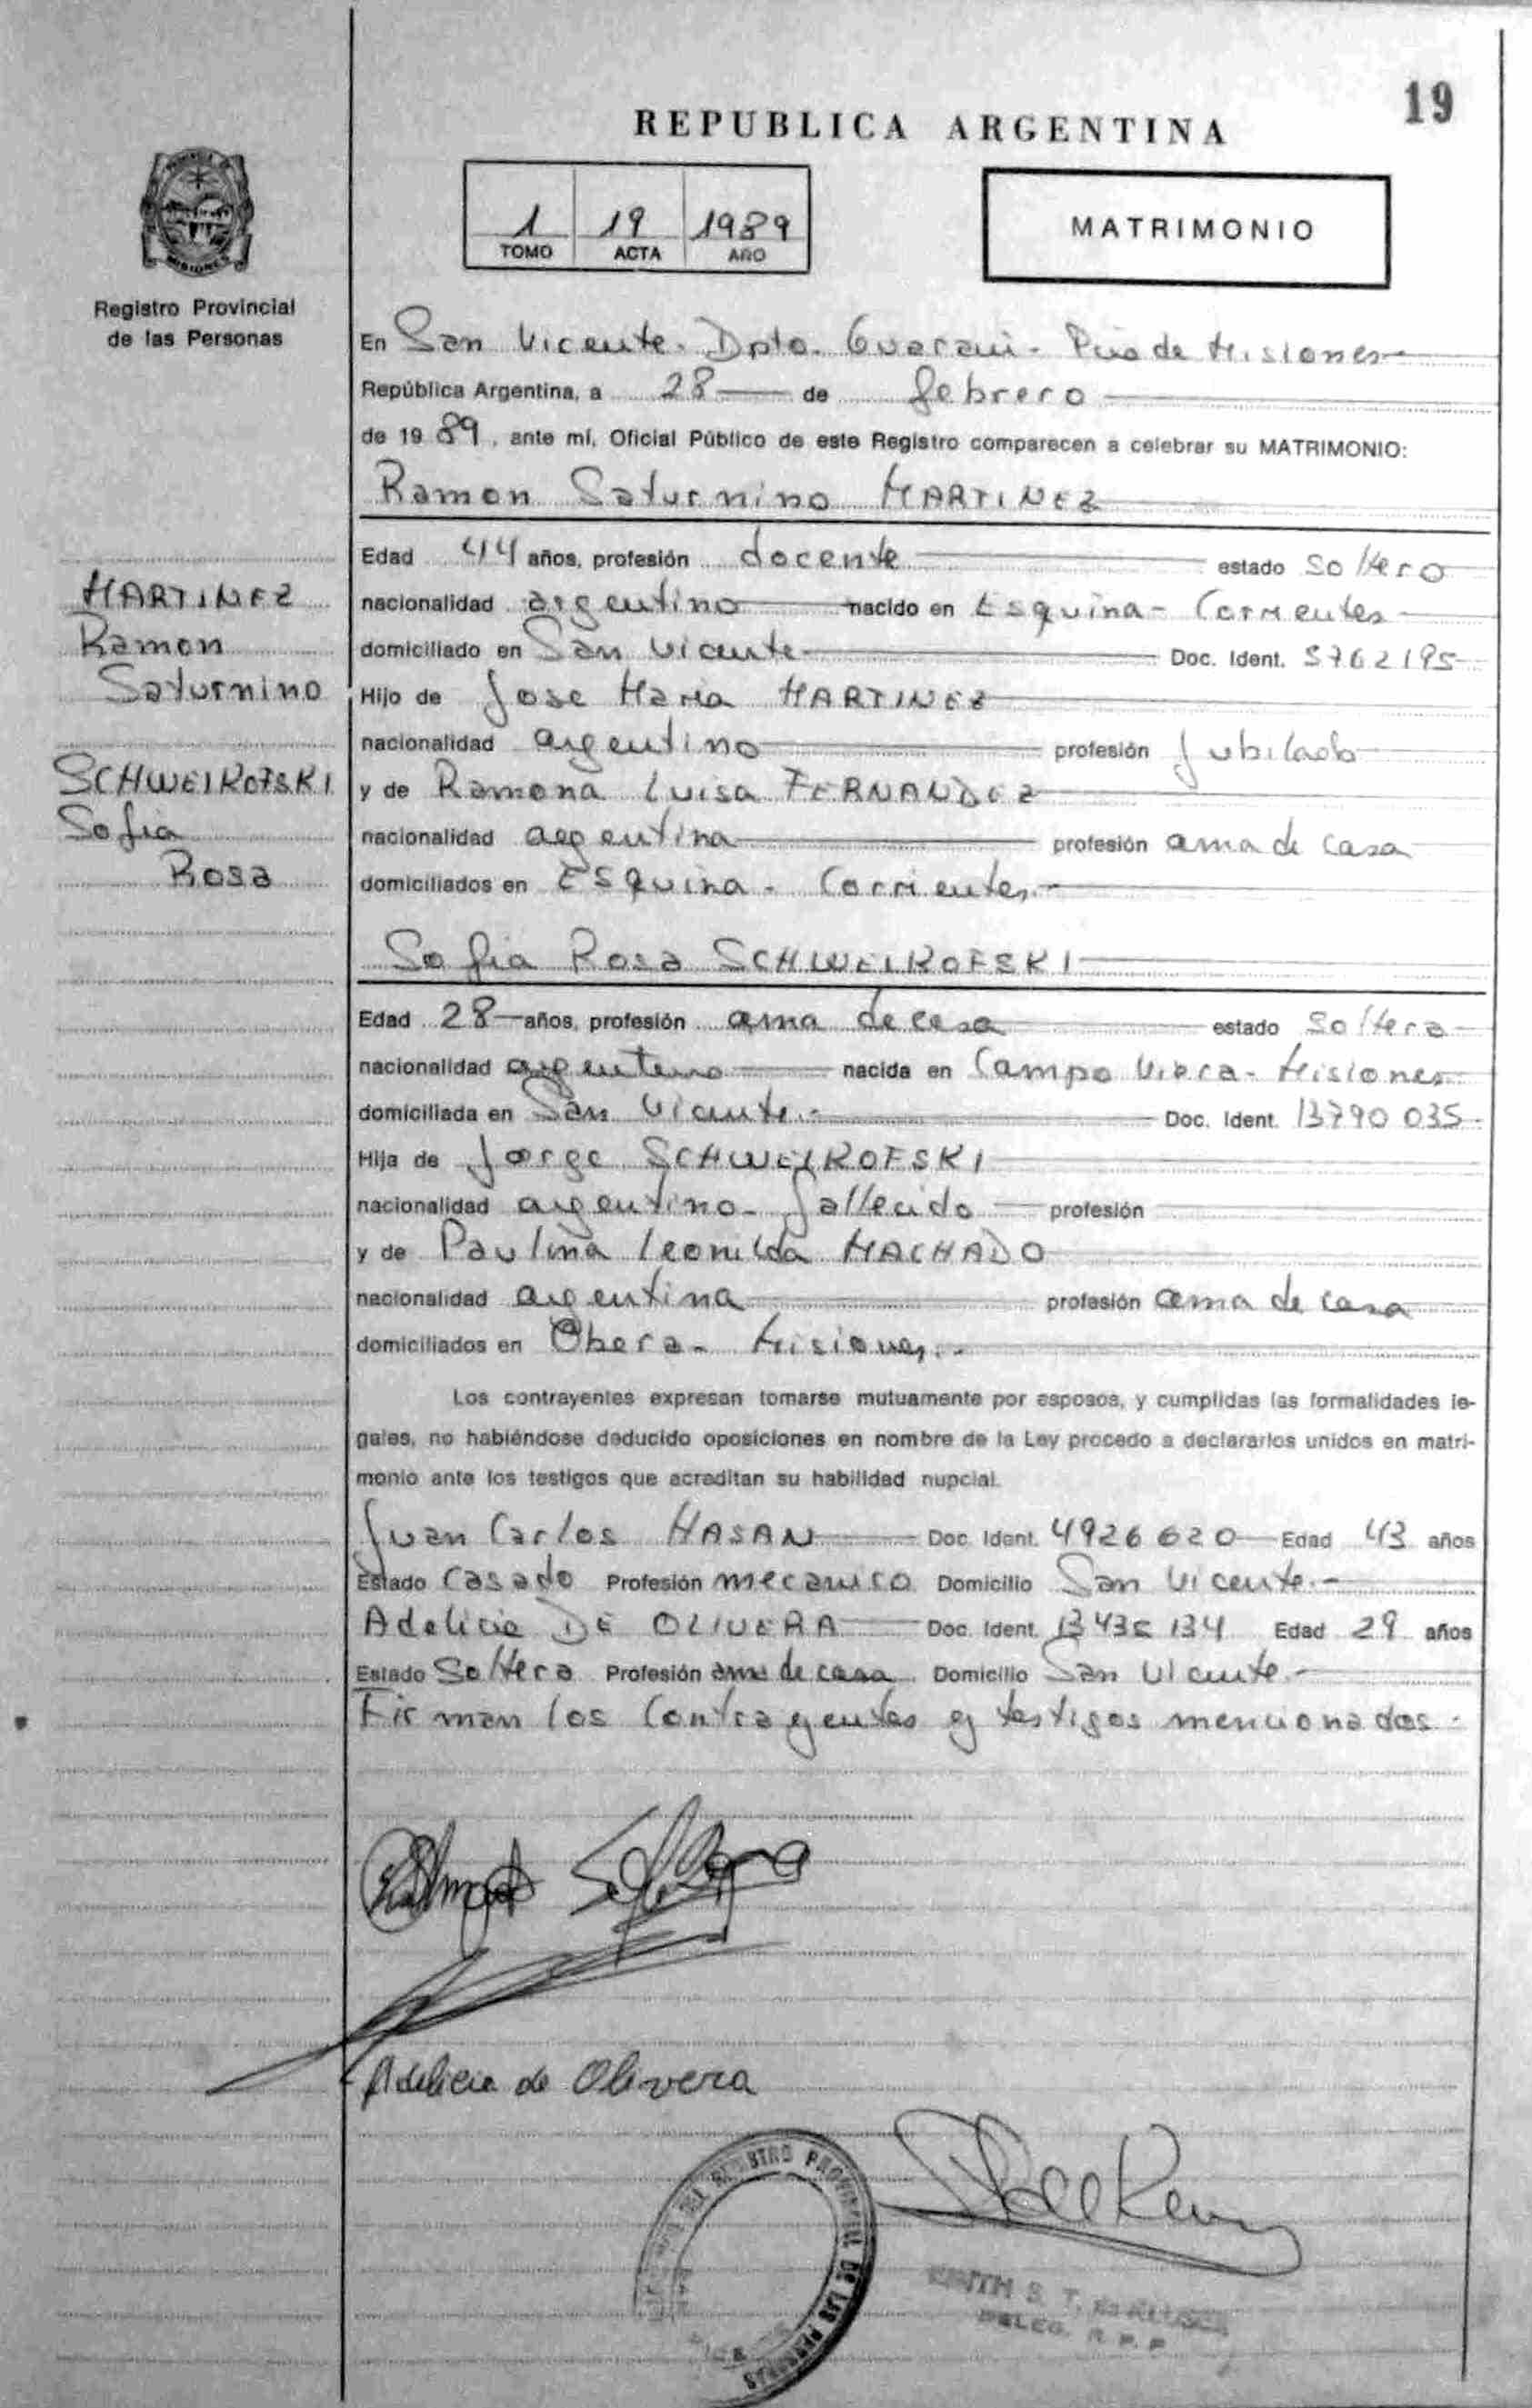 19
REPUBLICA ARGENTINA
1 19 1989
TOMO ACTA AÑO
MATRIMONIO
MISIONES
Registro Provincial
de las Personas
MARTINEZ
Ramon
Saturnino
SCHWEIKOFSKI
Sofia
Rosa
En San Vicente. Dpto. Guarani - Pcia de Misiones
República Argentina, a 28 de febrero
de 1989, ante mí, Oficial Público de este Registro comparecen a celebrar su MATRIMONIO:
Ramon Saturnino MARTINEZ
Edad 44 años, profesión docente estado soltero
nacionalidad argentino nacido en Esquina - Corrientes
domiciliado en San Vicente Doc. Ident. 5762195
Hijo de Jose Maria MARTINEZ
nacionalidad argentino profesión jubilado
y de Ramona Luisa FERNANDEZ
nacionalidad argentina profesión ama de casa
domiciliados en Esquina - Corrientes.
Sofia Rosa SCHWEIKOFSKI
Edad 28 años, profesión ama de casa estado soltera
nacionalidad nacida en Campo Viera - Misiones
domiciliada en San Vicente. Doc. Ident. 13790 035
Hija de Jorge SCHWEIKOFSKI
nacionalidad argentino - fallecido profesión
y de Paulina Leonilda MACHADO
nacionalidad argentina profesión ama de casa
domiciliados en Obera - Misiones.
Los contrayentes expresan tomarse mutuamente por esposos, y cumplidas las formalidades le-
gales, no habiéndose deducido oposiciones en nombre de la Ley procedo a declararlos unidos en matri-
monio ante los testigos que acreditan su habilidad nupcial.
Juan Carlos HASAN Doc. Ident. 4926620 Edad 43 años
Estado Casado Profesión mecanico Domicilio San Vicente.
Adelicia DE OLIVERA Doc. Ident. Edad 29 años
Estado Soltera Profesión ama de casa Domicilio San Vicente.
Firman los Contrayentes y testigos mencionados.
Adelicia de Olivera
REGISTRO PROVINCIAL DE LAS PERSONAS
S. T.
DELEG. R. P. P.